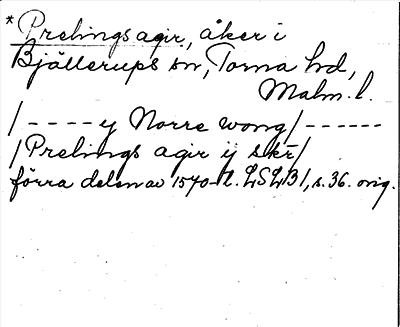 *Prelings agir, åker i
Bjällerups sn, Torna hd,
Malm. l.
/ - - - - y Norre wong/ - - - - - -
/Prelings agir ij skr/
förra delen av 1540-t. LSLB1, s. 36. orig.